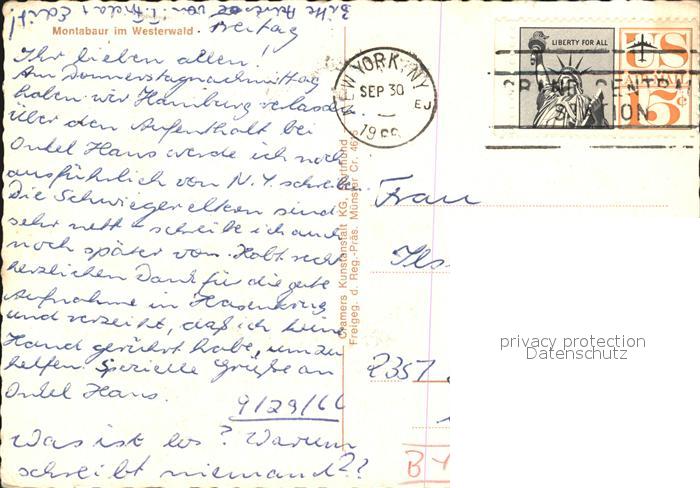 Bitte Adresse von
Montabaur im Westerwald
Freitag
Ihr lieben allen!
Am Donnerstagnachmittag
haben wir Hamburg verlassen.
Über den Aufenthalt bei
Onkel Hans werde ich noch
ausführlich von N.Y. schreiben.
Die Schwiegereltern sind
sehr nett – schreibe ich auch
noch später von. Habt recht
herzlichen Dank für die gute
Aufnahme in
und verzeiht, daß ich keine
Hand gerührt habe, um zu
helfen. Spezielle Grüße an
Onkel Hans.
9/29/66
Was ist los? Warum
schreibt niemand??
Cramers Kunstanstalt KG, Dortmund
Freigeg. d. Reg.-Präs. Münster Cr.
NEW YORK, N.Y.
SEP 30
EJ
1966
LIBERTY FOR ALL
US
15c
GRAND CENTRAL
STATION
Frau
Ils
2357
BY
privacy protection
Datenschutz